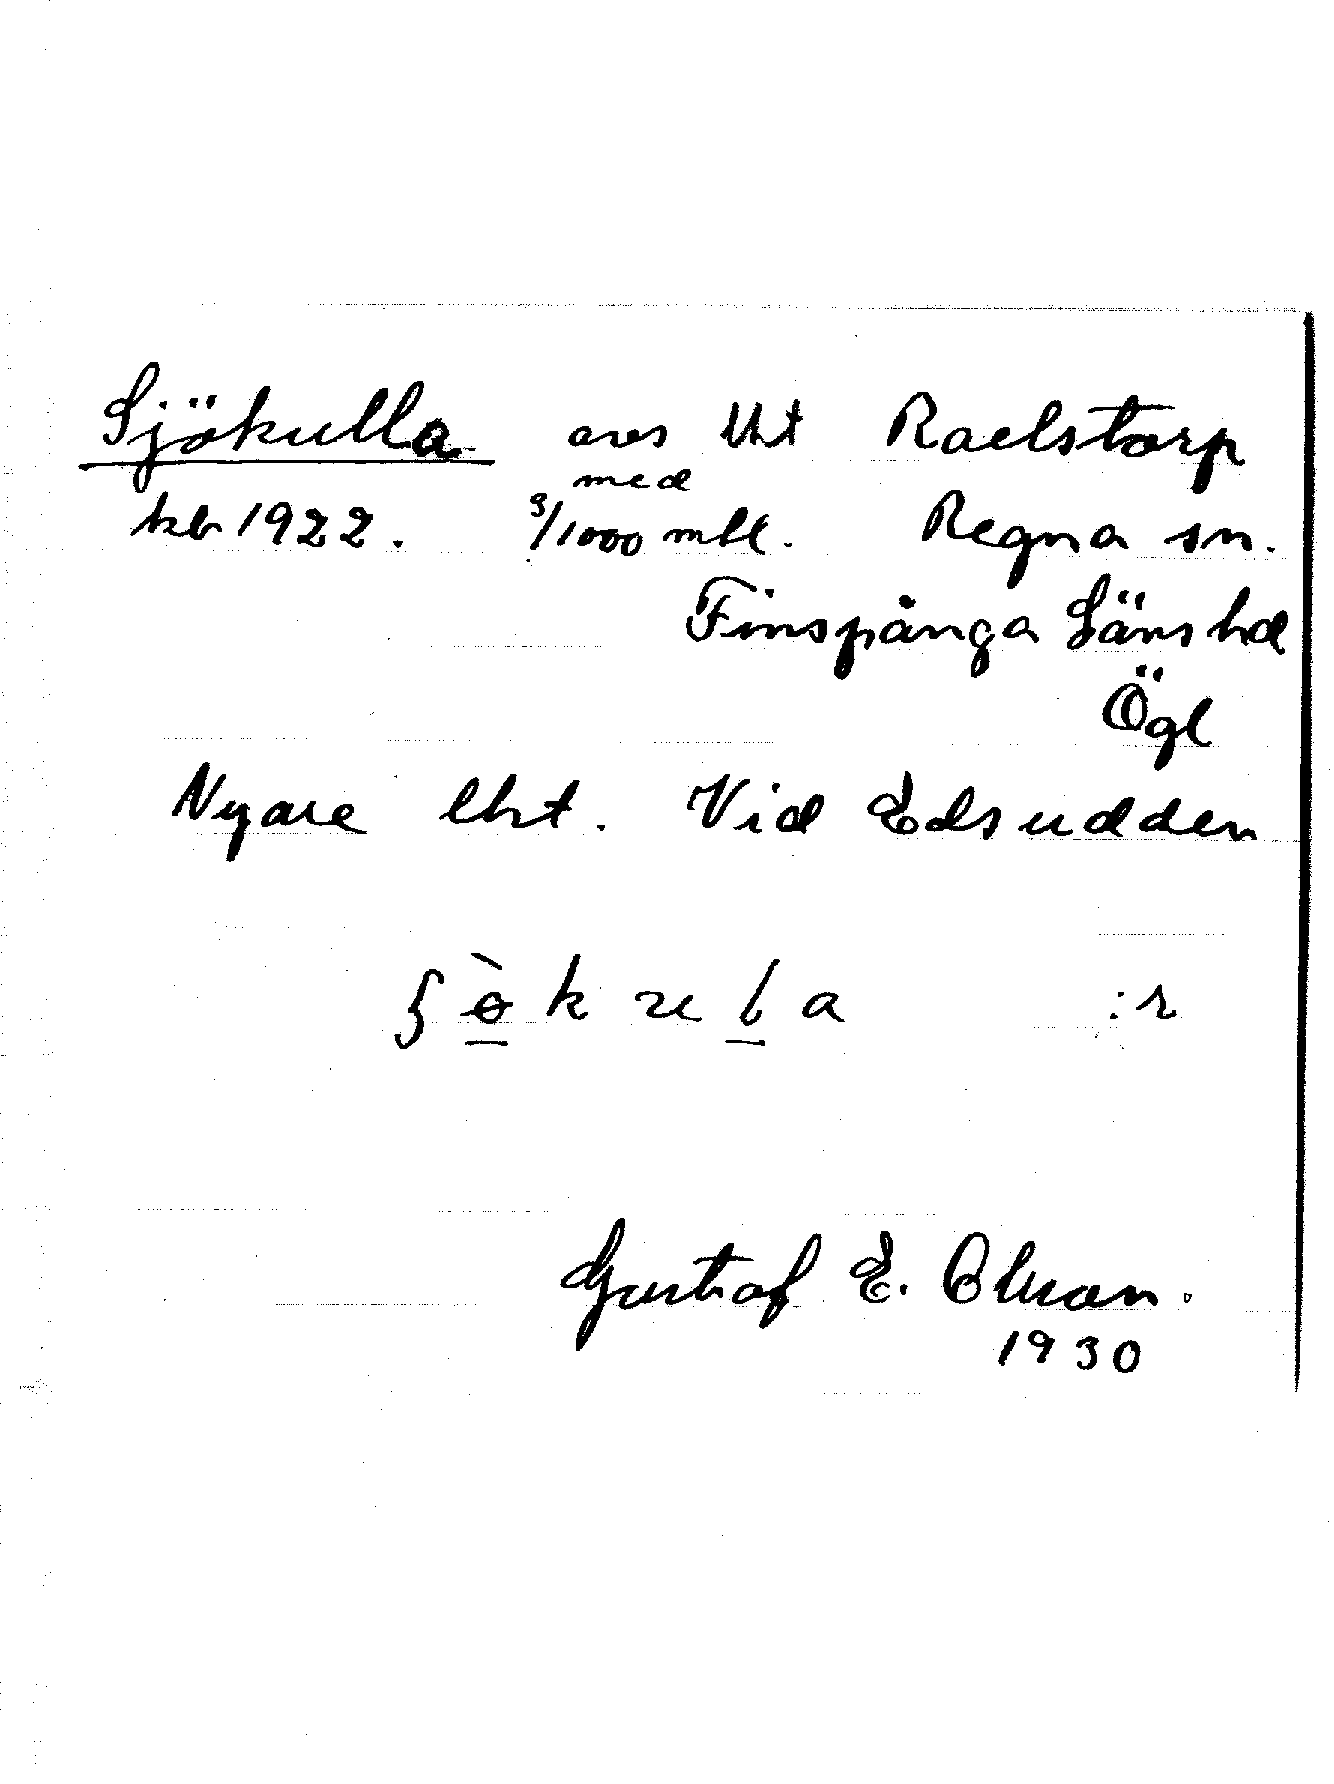 Sjökulla avs lht Raelstorp
med
kb 1922. 3/1000 mtl. Regna sn.
Finspånga Läns hd
Ögl
Nyare lht. Vid Edsudden
ʃ ö̀ k u l a :r
Gustaf E. Olsson.
1930